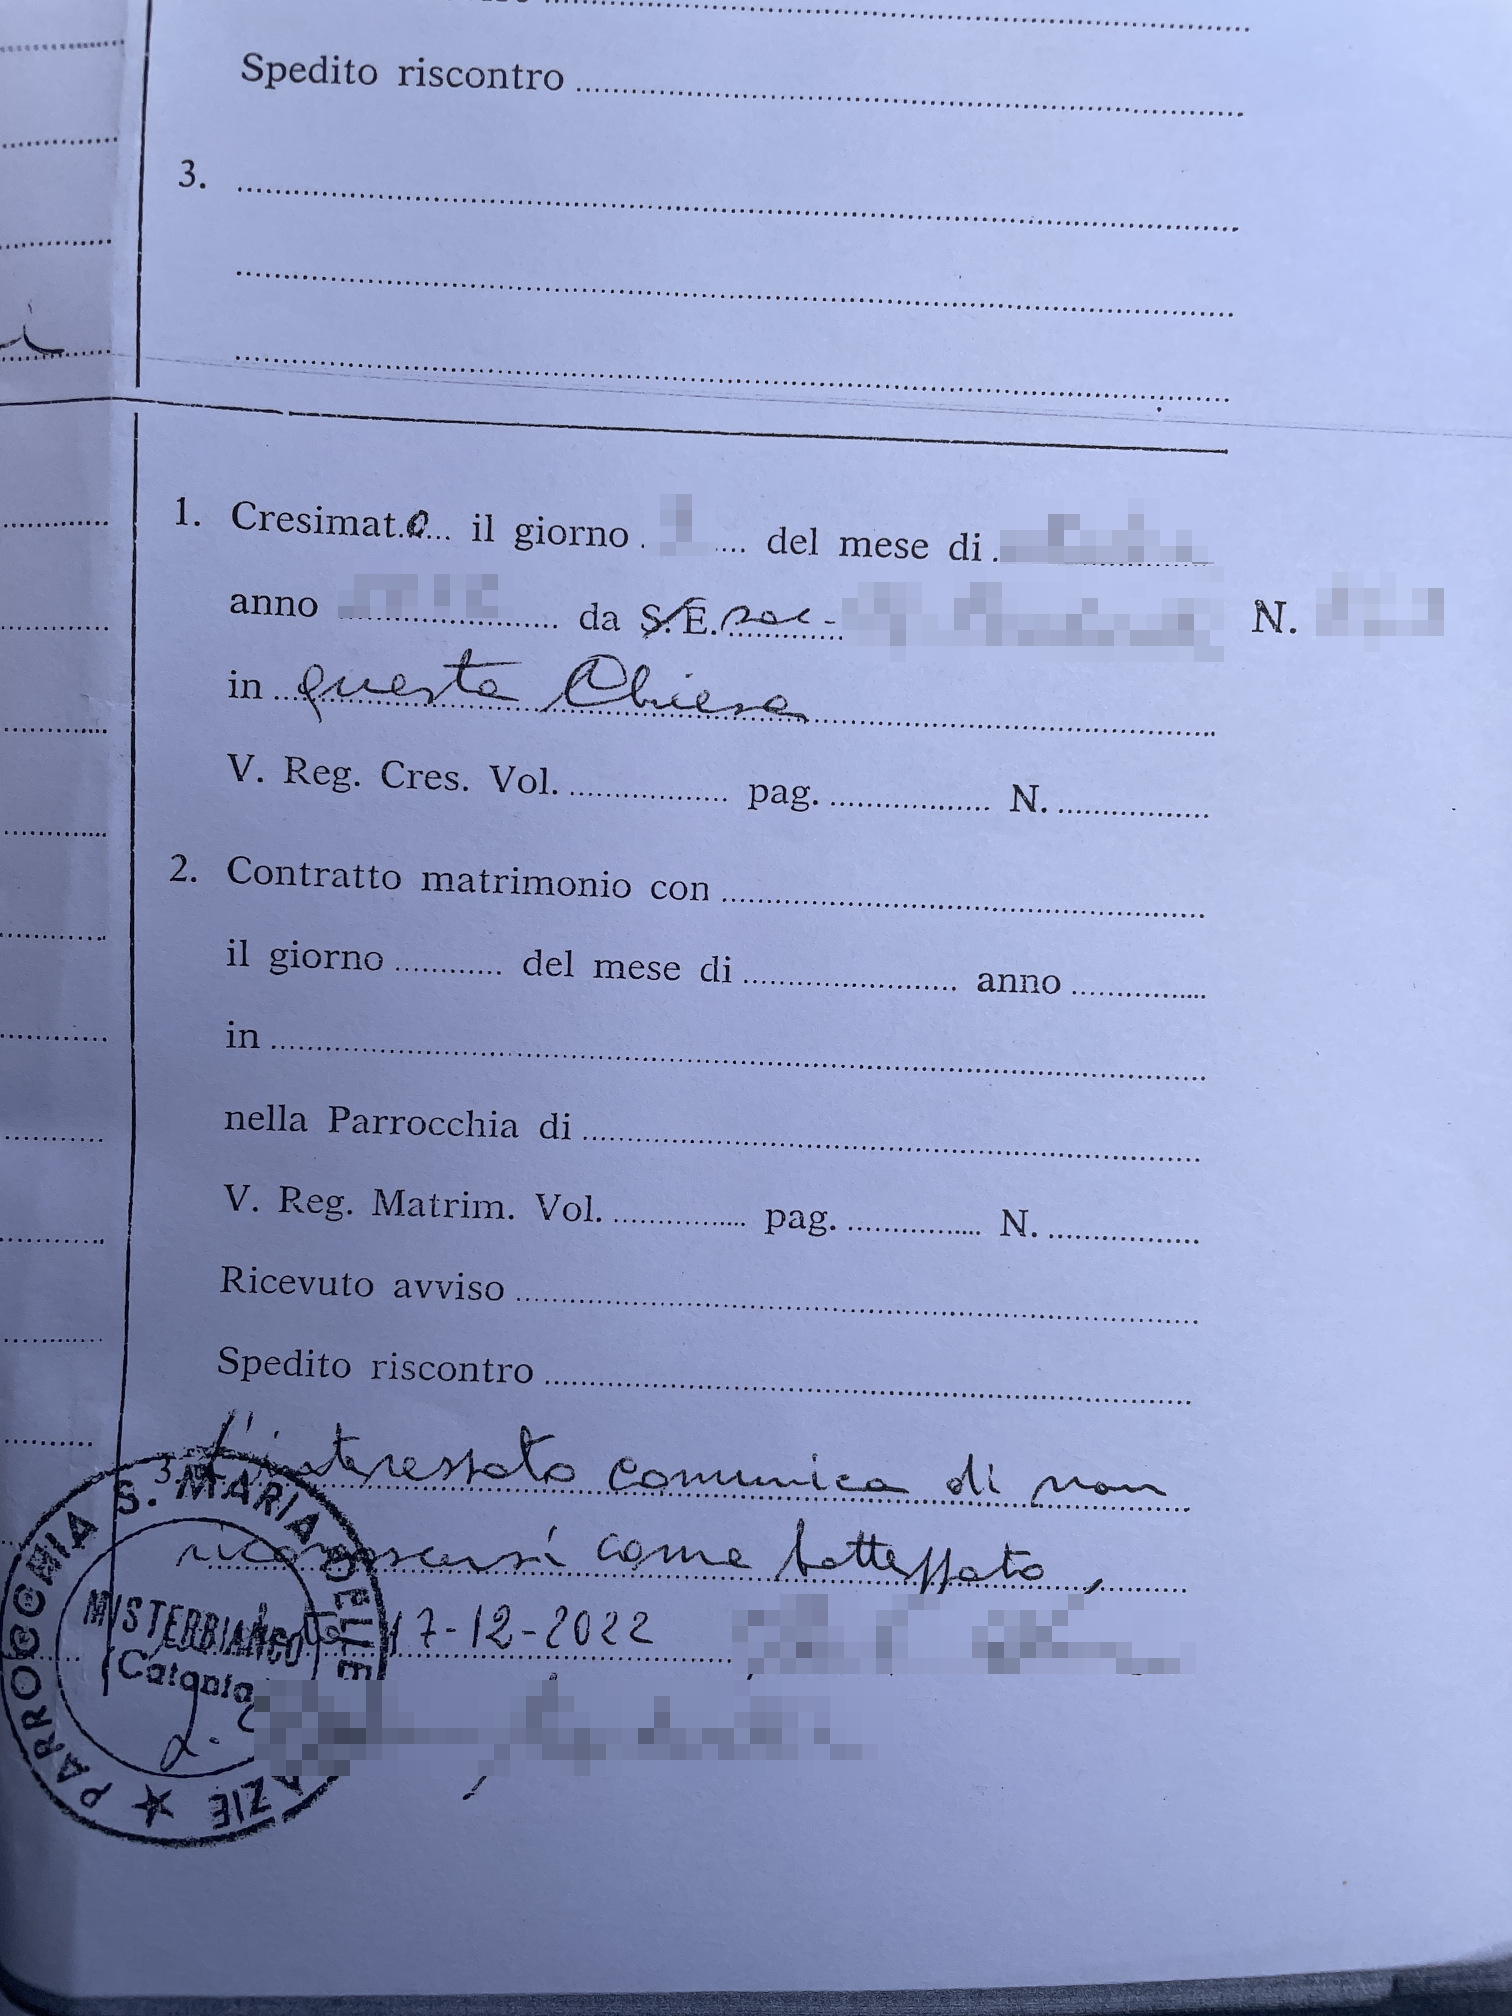 Spedito riscontro
3.
1. Cresimato il giorno del mese di
anno da S.E. sac. N.
in questa Chiesa
V. Reg. Cres. Vol. pag. N.
2. Contratto matrimonio con
il giorno del mese di anno
in
nella Parrocchia di
V. Reg. Matrim. Vol. pag. N.
Ricevuto avviso
Spedito riscontro
3. L'interessato comunica di non
riconoscersi come battezzato,
17-12-2022
PARROCCHIA S. MARIA DELLE GRAZIE
MISTERBIANCO
(Catania